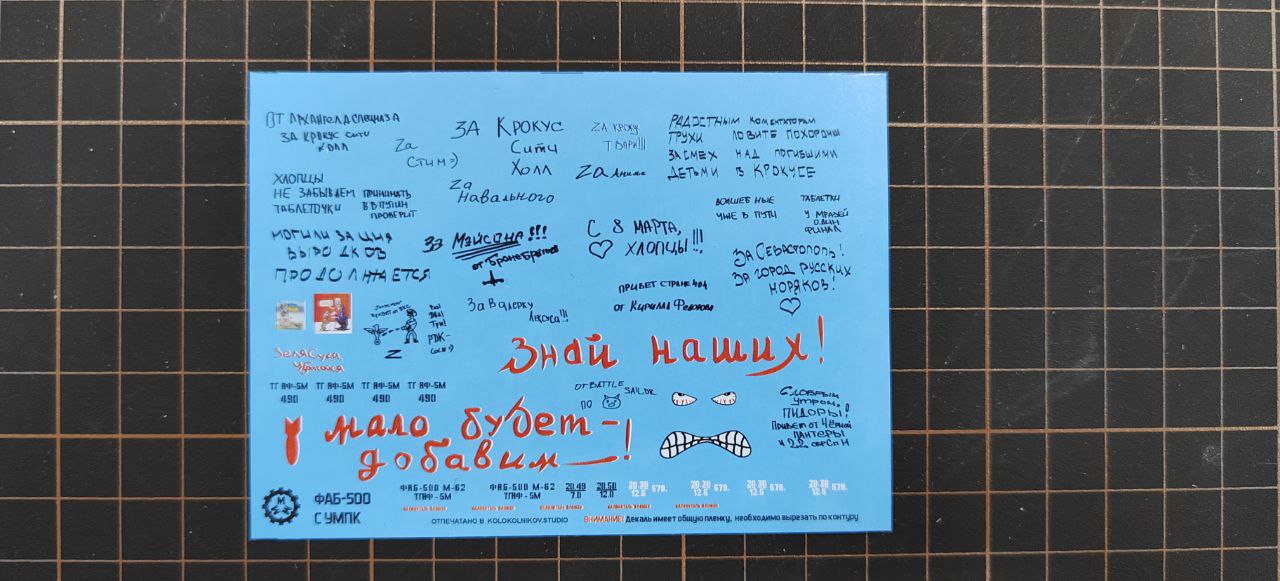 ОТ АРХАНГЕЛА СПЕЦНАЗА
ЗА КРОКУС СИТИ
ХОЛЛ
Zа
Стим :)
ЗА КРОКУС
Сити
Холл
ZА КРОКУС
ТВАРИ!!!
ZА Аниме
РАДОСТНЫМ КОМЕНТАТОРАМ
ГРУХИ ЛОВИТЕ ПОХОРОНКИ
ЗА СМЕХ НАД ПОГИБШИМИ
ДЕТЬМИ В КРОКУСЕ
ХЛОПЦЫ
НЕ ЗАБЫВАЕМ ПРИНИМАТЬ
ТАБЛЕТОЧКИ В В ПУТИН
ПРОВЕРИТ
Zа
Навального
МОГИЛИЗАЦИЯ
ВЫРОДКОВ
ПРОДОЛЖАЕТСЯ
ЗА МЭЙСОНА!!!
от БРОНЕБРАТЬЕВ
С 8 МАРТА,
ХЛОПЦЫ!!!
ВОЛШЕБНЫЕ ТАБЛЕТКИ
УЖЕ В ПУТИ
У МРАЗЕЙ
ОДИН
ФИНАЛ
ЗА СЕВАСТОПОЛЬ!
ЗА ГОРОД РУССКИХ
МОРЯКОВ!
ПРИВЕТ СТРАНЕ 404
от Кирилла Федорова
За Валерку
Z
Раз!
Два!
Три!
РДК-
соси :)
Знай наших!
ТГ ЯФ-5М ТГ ЯФ-5М ТГ ЯФ-5М ТГ ЯФ-5М
490 490 490 490
ОТ BATTLE
SAILOR
ПО
С ДОБРЫМ
УТРОМ,
ПИДОРЫ!
ПРИВЕТ ОТ ЧЁРНОЙ
ПАНТЕРЫ
И 22 ОБРСПН
мало будет -
добавим !
М
ФАБ-500
С УМПК
ФАБ-500 М-62 ФАБ-500 М-62
ТГАФ - 5М ТГАФ - 5М
20.49 20.50
7.0 12.0
20.30 579. 20.30 579. 20.30 579. 20.30 579.
12.5 12.5 12.5 12.5
ОТПЕЧАТАНО В KOLOKOLNIKOV.STUDIO
ВНИМАНИЕ! Декаль имеет общую пленку, необходимо вырезать по контуру